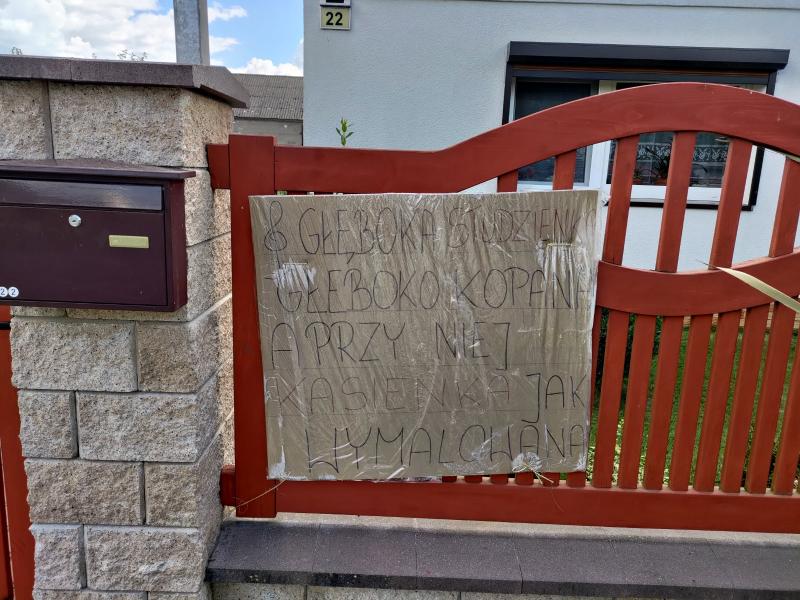 22
8 GŁĘBOKA STUDZIENKA
GŁEBOKO KOPANA
A PRZY NIEJ
KASIEŃKA JAK
WYMALOWANA
22